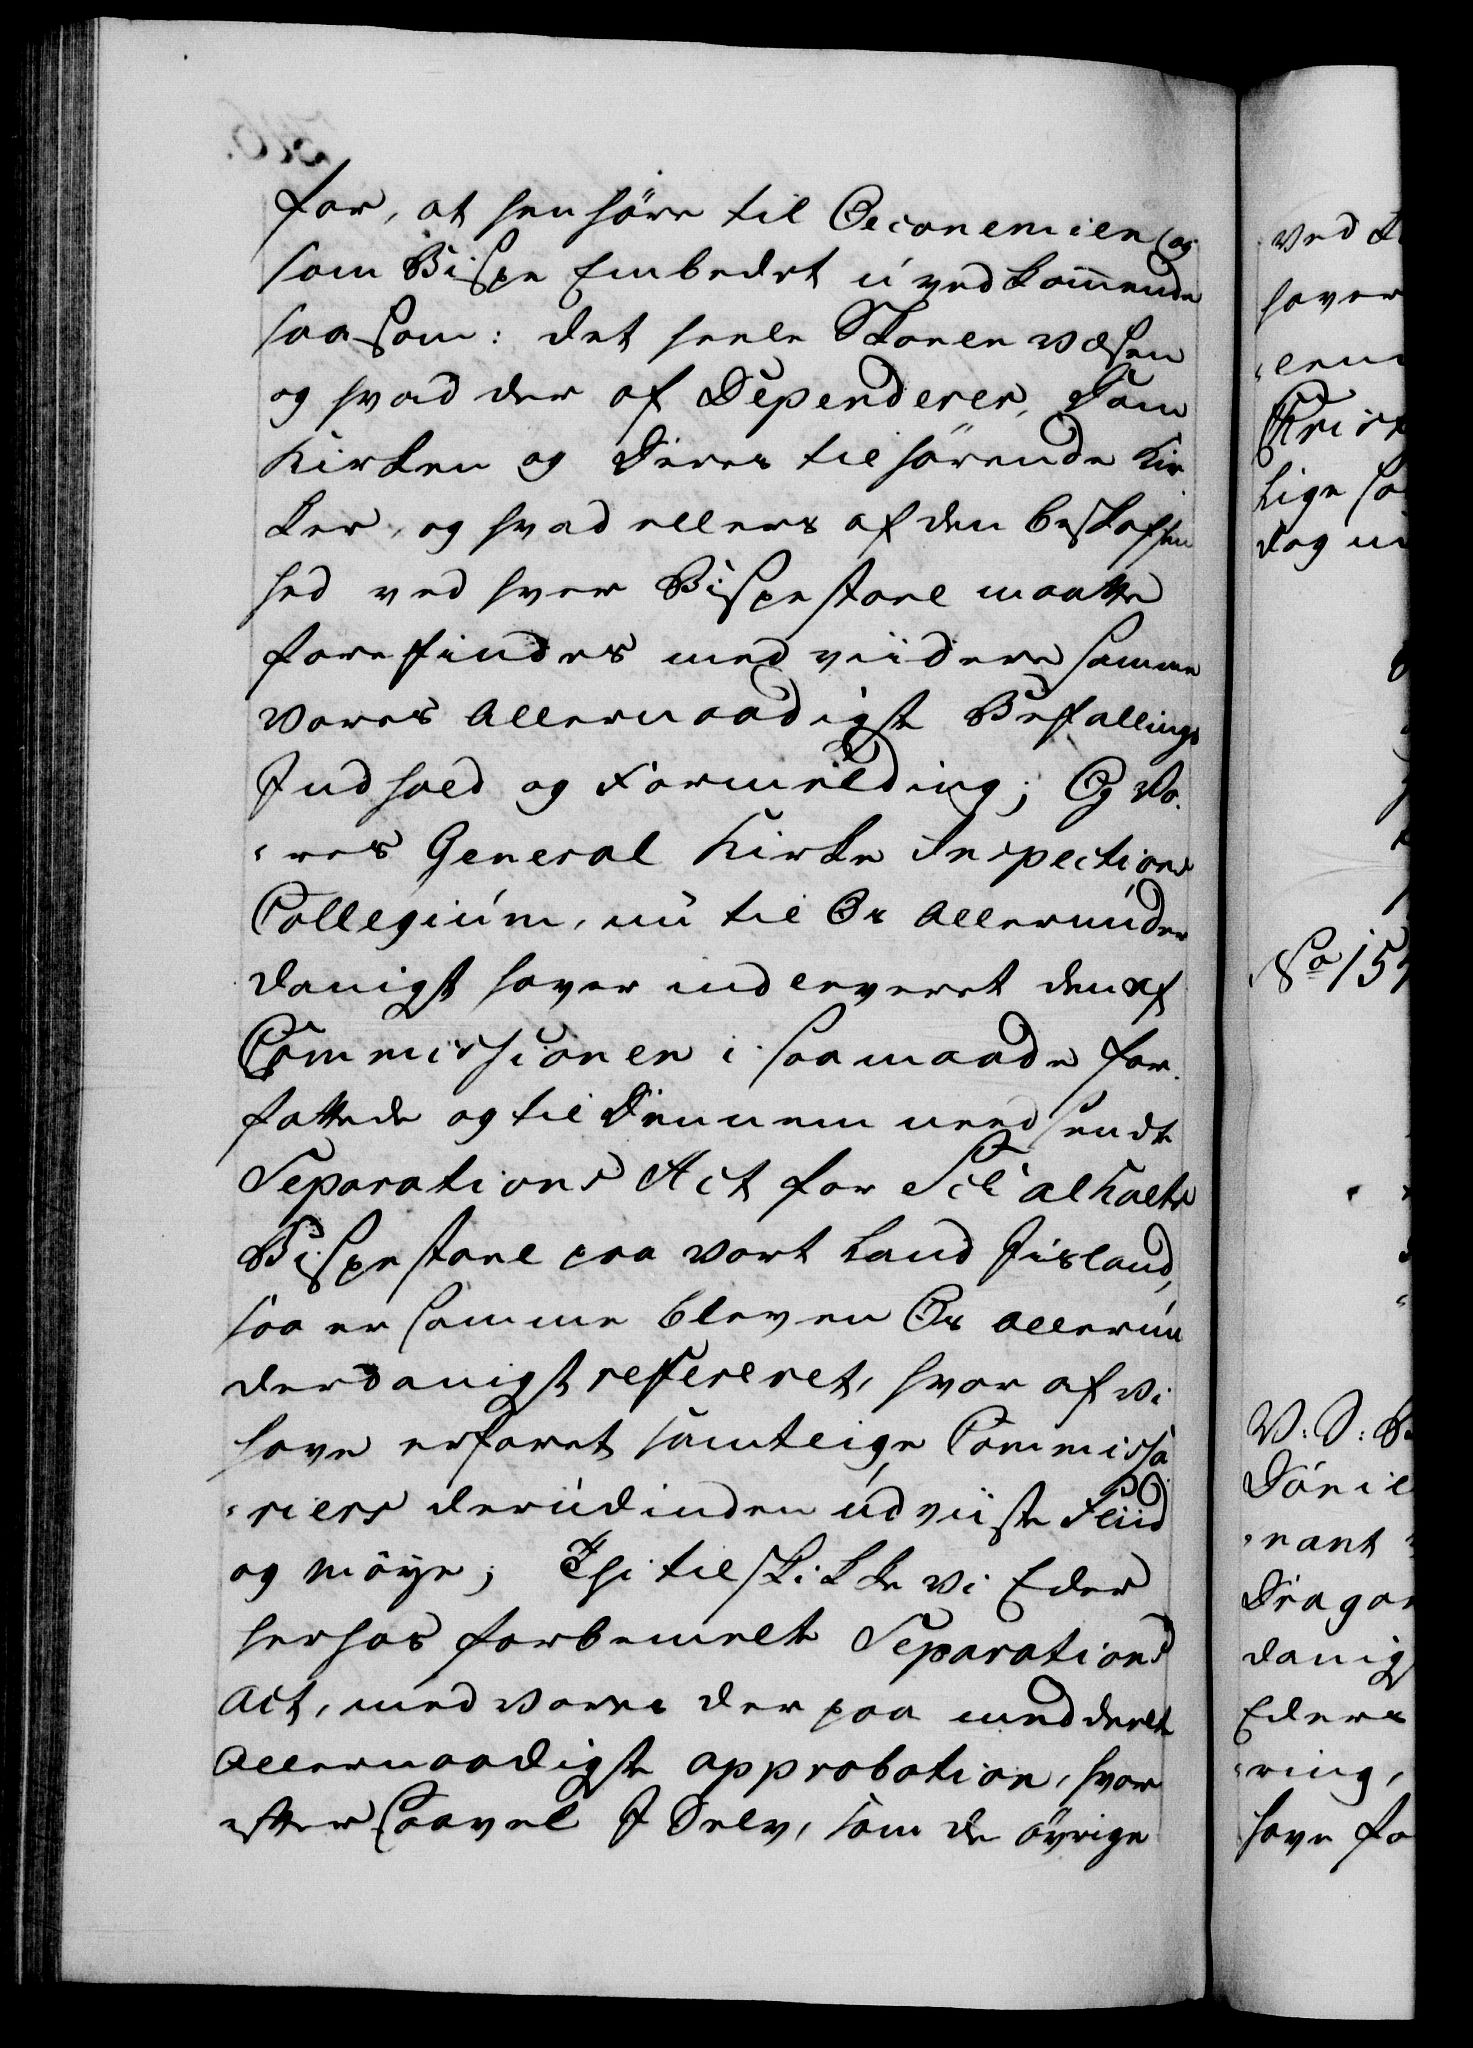 for, at henhöre til Oeconomien og
som Bispe Embedet uvedkom̄ende
saasom: det heele Skolevæsen
og hvad der af Dependerer, Dom
Kirken og Deres tilhörende Kir
ker, og hvad ellers af den beskaffen
hed ved hver Bispestoel maatte
forefindes med viidere samme
Vores Allernaadigste Befallings
Indhold og Formelding; Og Vo-
res General Kirke Inspections
Collegium, nu til Os Allerunder
danigst haver indleveret den af
Commissionen i saamaade for-
fattede og til Dennem need sendte
Separations Act for Schalholts
Bispestoel paa vort Land Iisland,
saa er samme bleven Os allerun
derdanigst refereret, hvor af vi
have erfaret samtlige Commissa
riers derudinden udviiste Fliid
og möye; Thi tilskikke vi Eder
herhos forbemelte Separations
Act, med vores der paa meddeelte
Allernaadigste approbation, hvor
efter saavel I Selv, som de övrige
ved
haver
Chris
lige
dog
No 15
V: S:
Dani
nant
Dragon
danig
Eders
ring,
have fo